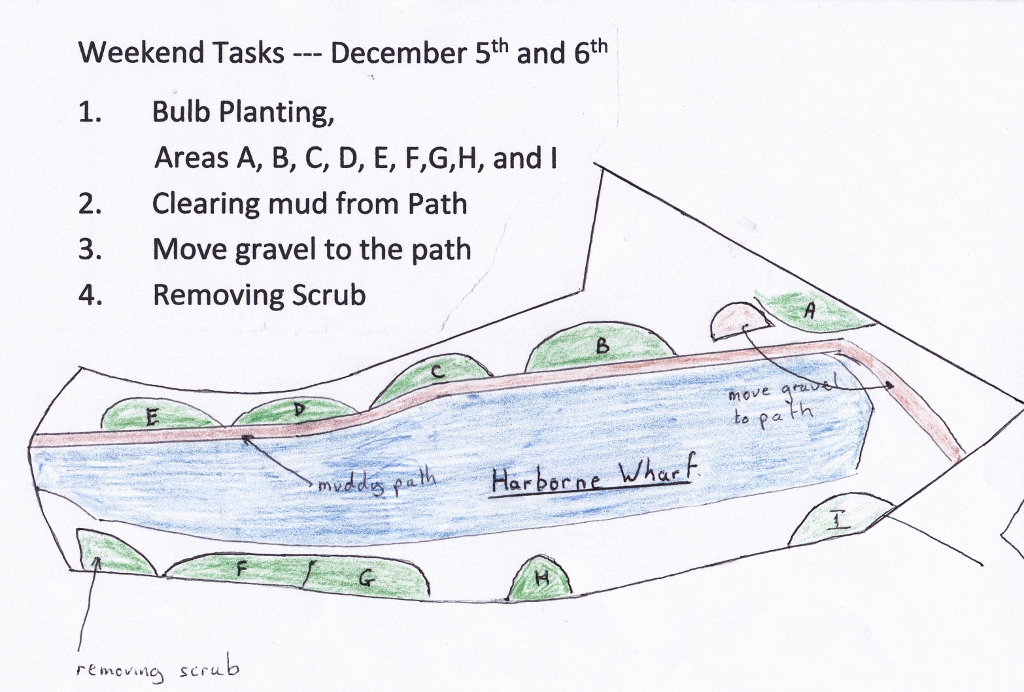 Weekend Tasks --- December 5th and 6th
1. Bulb Planting,
Areas A, B, C, D, E, F,G,H, and I
2. Clearing mud from Path
3. Move gravel to the path
4. Removing Scrub
A
B
C
move gravel
to path
E
D
muddy path
Harborne Wharf.
I
F
G
H
removing scrub